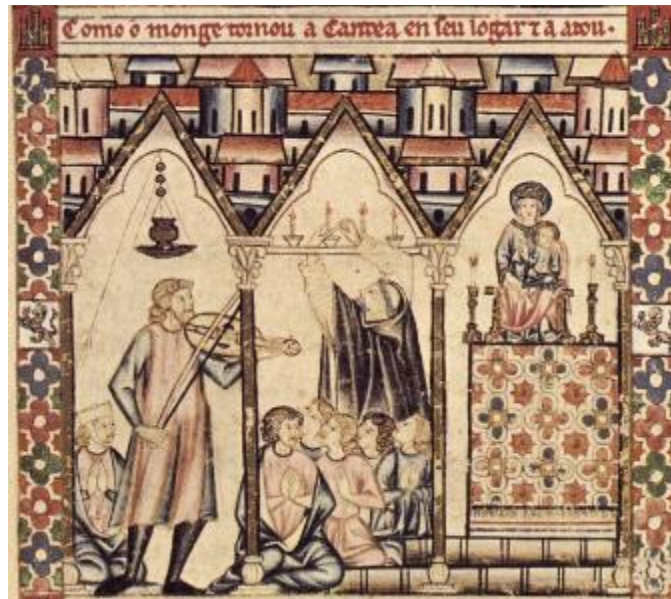 Como o monge tornou a candea en seu logar ⁊ a atou.